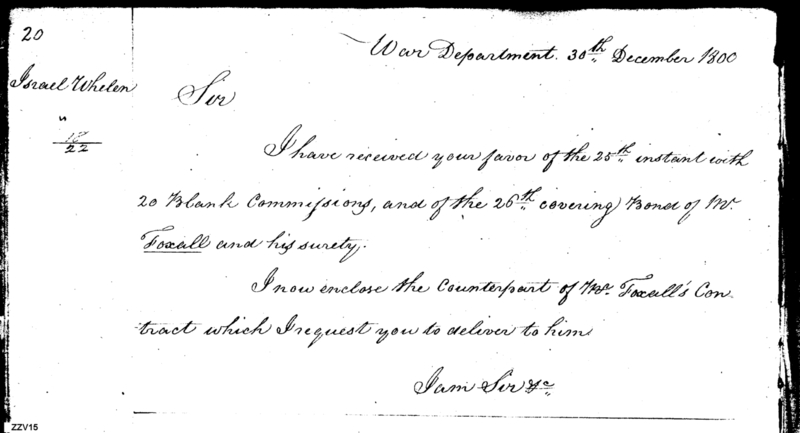 20
War Department. 30th December 1800
Israel Whelen
Sir
"
18
22
I have received your favor of the 25th instant with
20 Blank Commissions, and of the 26th covering Bond of Mr.
Foxall and his surety.
I now enclose the Counterpart of Mr. Foxall's Con
tract which I request you to deliver to him
I am Sir &c
ZZV15